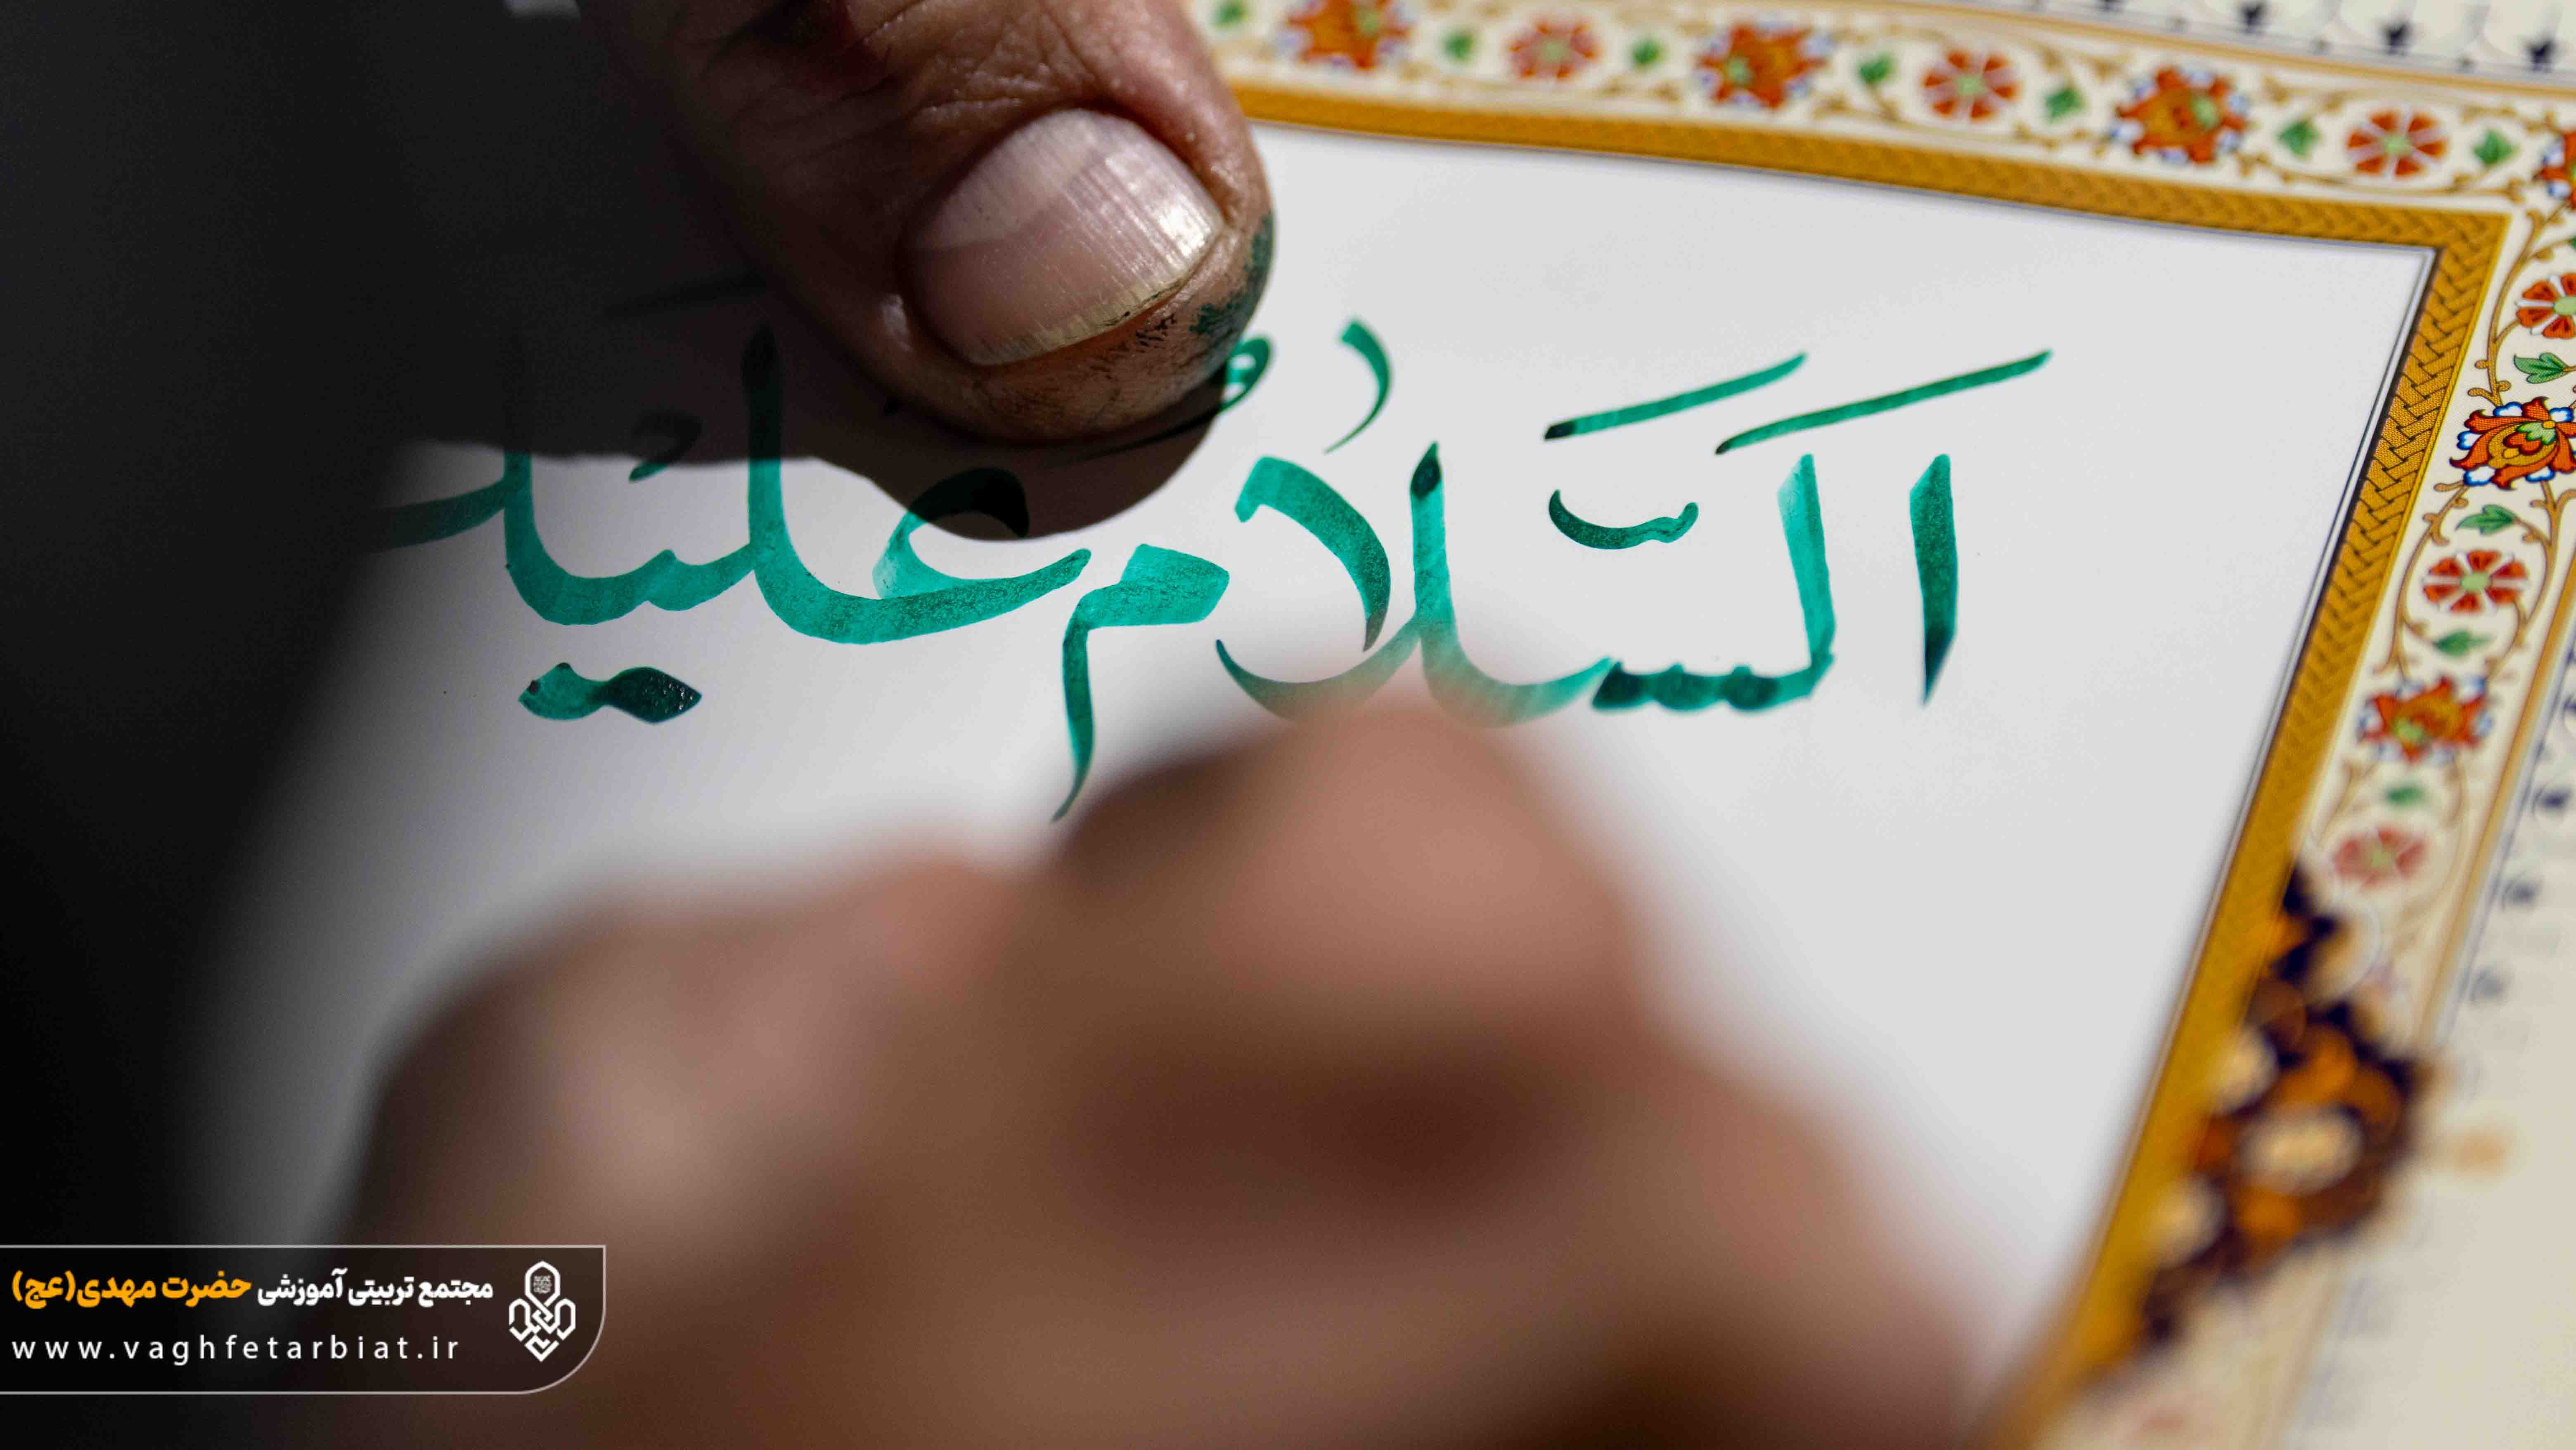 اَلسَّلامُ عَلَيْك
مجتمع تربیتی آموزشی حضرت مهدی(عج)
www.vaghfetarbiat.ir